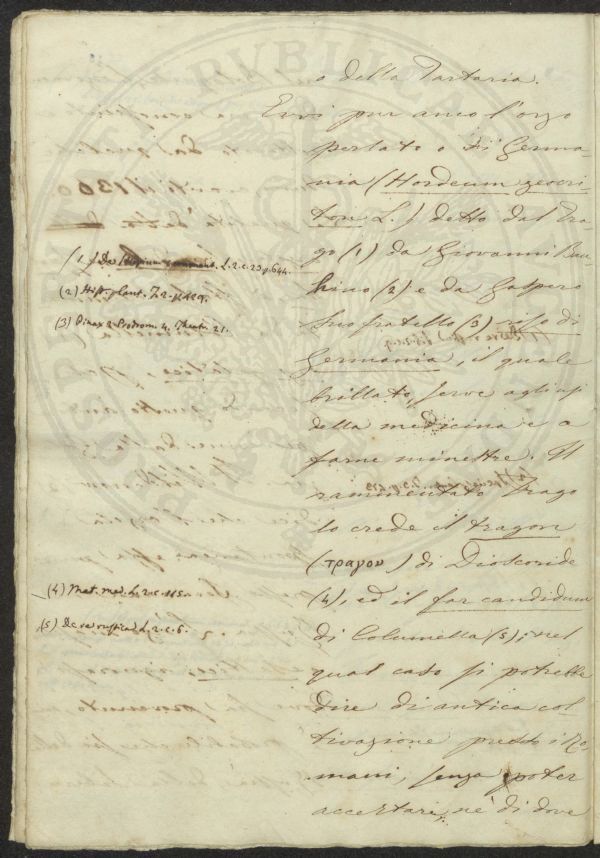 o della Tartaria.
Evvi pur anco l'orzo
perlato o di Germa-
nia (Hordeum zeocri-
ton L.) detto dal Tra-
go (1) da Giovanni Bau-
hino (2) e da Gaspero
suo fratello (3) riso di
Germania, il quale
brillato, serve agli usi
della medicina e a
farne minestre. Il
rammentato Trago
lo crede il tragon
(τραγου) di Dioscoride
(4), ed il far candidum
di Columella (5); nel
qual caso si potrebbe
dire di antica col-
tivazione presso i Ro-
mani, senza poter
accertare, nè di dove
(1) De Stirpium L. 2. c. 23 p. 644.
(2) Hist. plant. T. 2. p. 429.
(3) Pinax 22 Prodrom. 4. Theatr. 21.
(4) Mat. med. L. 2. c. 115.
(5) De re rustica L. 2. c. 6.
PUBLICA